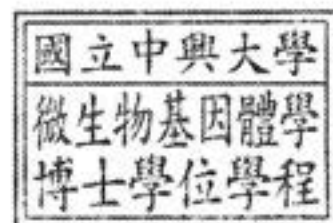 國立中興大學
微生物基因體學
博士學位學程